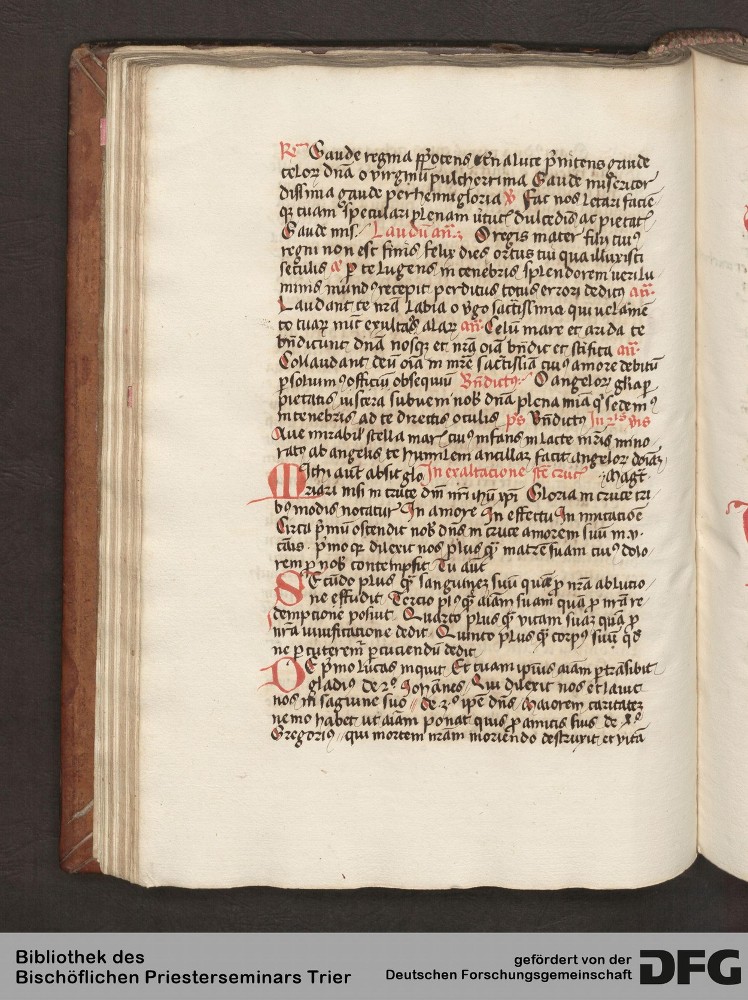 Rͫ Gaude regina p̄potens En a luce p̄nitens gaude
celoꝝ dn̄a o virginū pulcherrima Gaude misericor
dissima gaude perhennis gloria ℣ Fac nos letari facie
qꝫ tuam speculari plenam v̄tut̄ dulcedis ac pietat̄
Gaude mis. Laudū an̄. O regis mater filii cuiꝰ
regni non est finis felix dies ortus tui qua illuxisti
seculis ⁊ p̲ te lugens in tenebris splendorem veri lu
minis mūdꝰ recepit perditus totus errori deditꝰ an̄.
Laudant te nr̄a labia o v̄go sactissima qui vclame
te tuaꝝ alaꝝ an̄. Celū mare et arida te
bn̄dicunt dn̄am nosqꝫ et nr̄a oīa bn̄dic et sc̄ifica an̄.
Collaudant deū oīa in mr̄e sactissīa cuiꝰ amore debitū
p̲soluimꝰ officiū obsequiū Bn̄dictꝰ. O angeloꝝ glīa p̲
pietatis viscera subueni nob̄ dn̄a plena mīa qͥ sedemꝰ
in tenebris ad te directis oculis ps̄ Bn̄dictꝰ In 2ͥˢ v̄is
Aue mirabil̄ stella mar̄ cuiꝰ infans in lacte mr̄is mino
ratꝰ ab angelis te humilem ancillaꝫ facit angeloꝝ doīaꝫ
MIchi aut̄ absit glo In exaltacione sc̄e cruc̄ Maḡt.
riari nisi in cruce dn̄i nr̄i ihū xp̄i Gloria in cruce tri
bꝰ modis notatur In amore In effectu In imitacioē
Circa p̄mū ostendit nob̄ dn̄s in cruce amorem suū in v.
cāis. p̄mo qꝛ dilexit nos plus qͣ matrē suam cuiꝰ dolo
rem p̲ nob̄ contempsit Tu aut̄
SEcūdo plus qͣ sanguineꝫ suū quē p̲ nr̄a ablucio
ne effudit Tercio plꝰ qͣ aīam suam quā p̲ nr̄a re
dempcione posuit Quarto plus qͣ vitam suaꝫ quā p̲
nr̄a viuificatione dedit. Quinto plus qͣ corpꝰ suū qd̄
ne p̲cuterem̄ p̲cuciendū dedit
DE p̄mo Lucas inquit Et tuam ip̄ius aīam p̲trāsibit
gladiꝰ de 2º Johānes Qui dilexit nos et lauit
nos in sagiune suo de 3º ip̄e dn̄s Maiorem caritateꝫ
nemo habet ut aīam ponat quis p̲ amicis suis de 4º
Gregoriꝰ qui mortem nr̄am moriendo destruxit et vitā
Bibliothek des
Bischöflichen Priesterseminars Trier
gefördert von der
Deutschen Forschungsgemeinschaft DFG